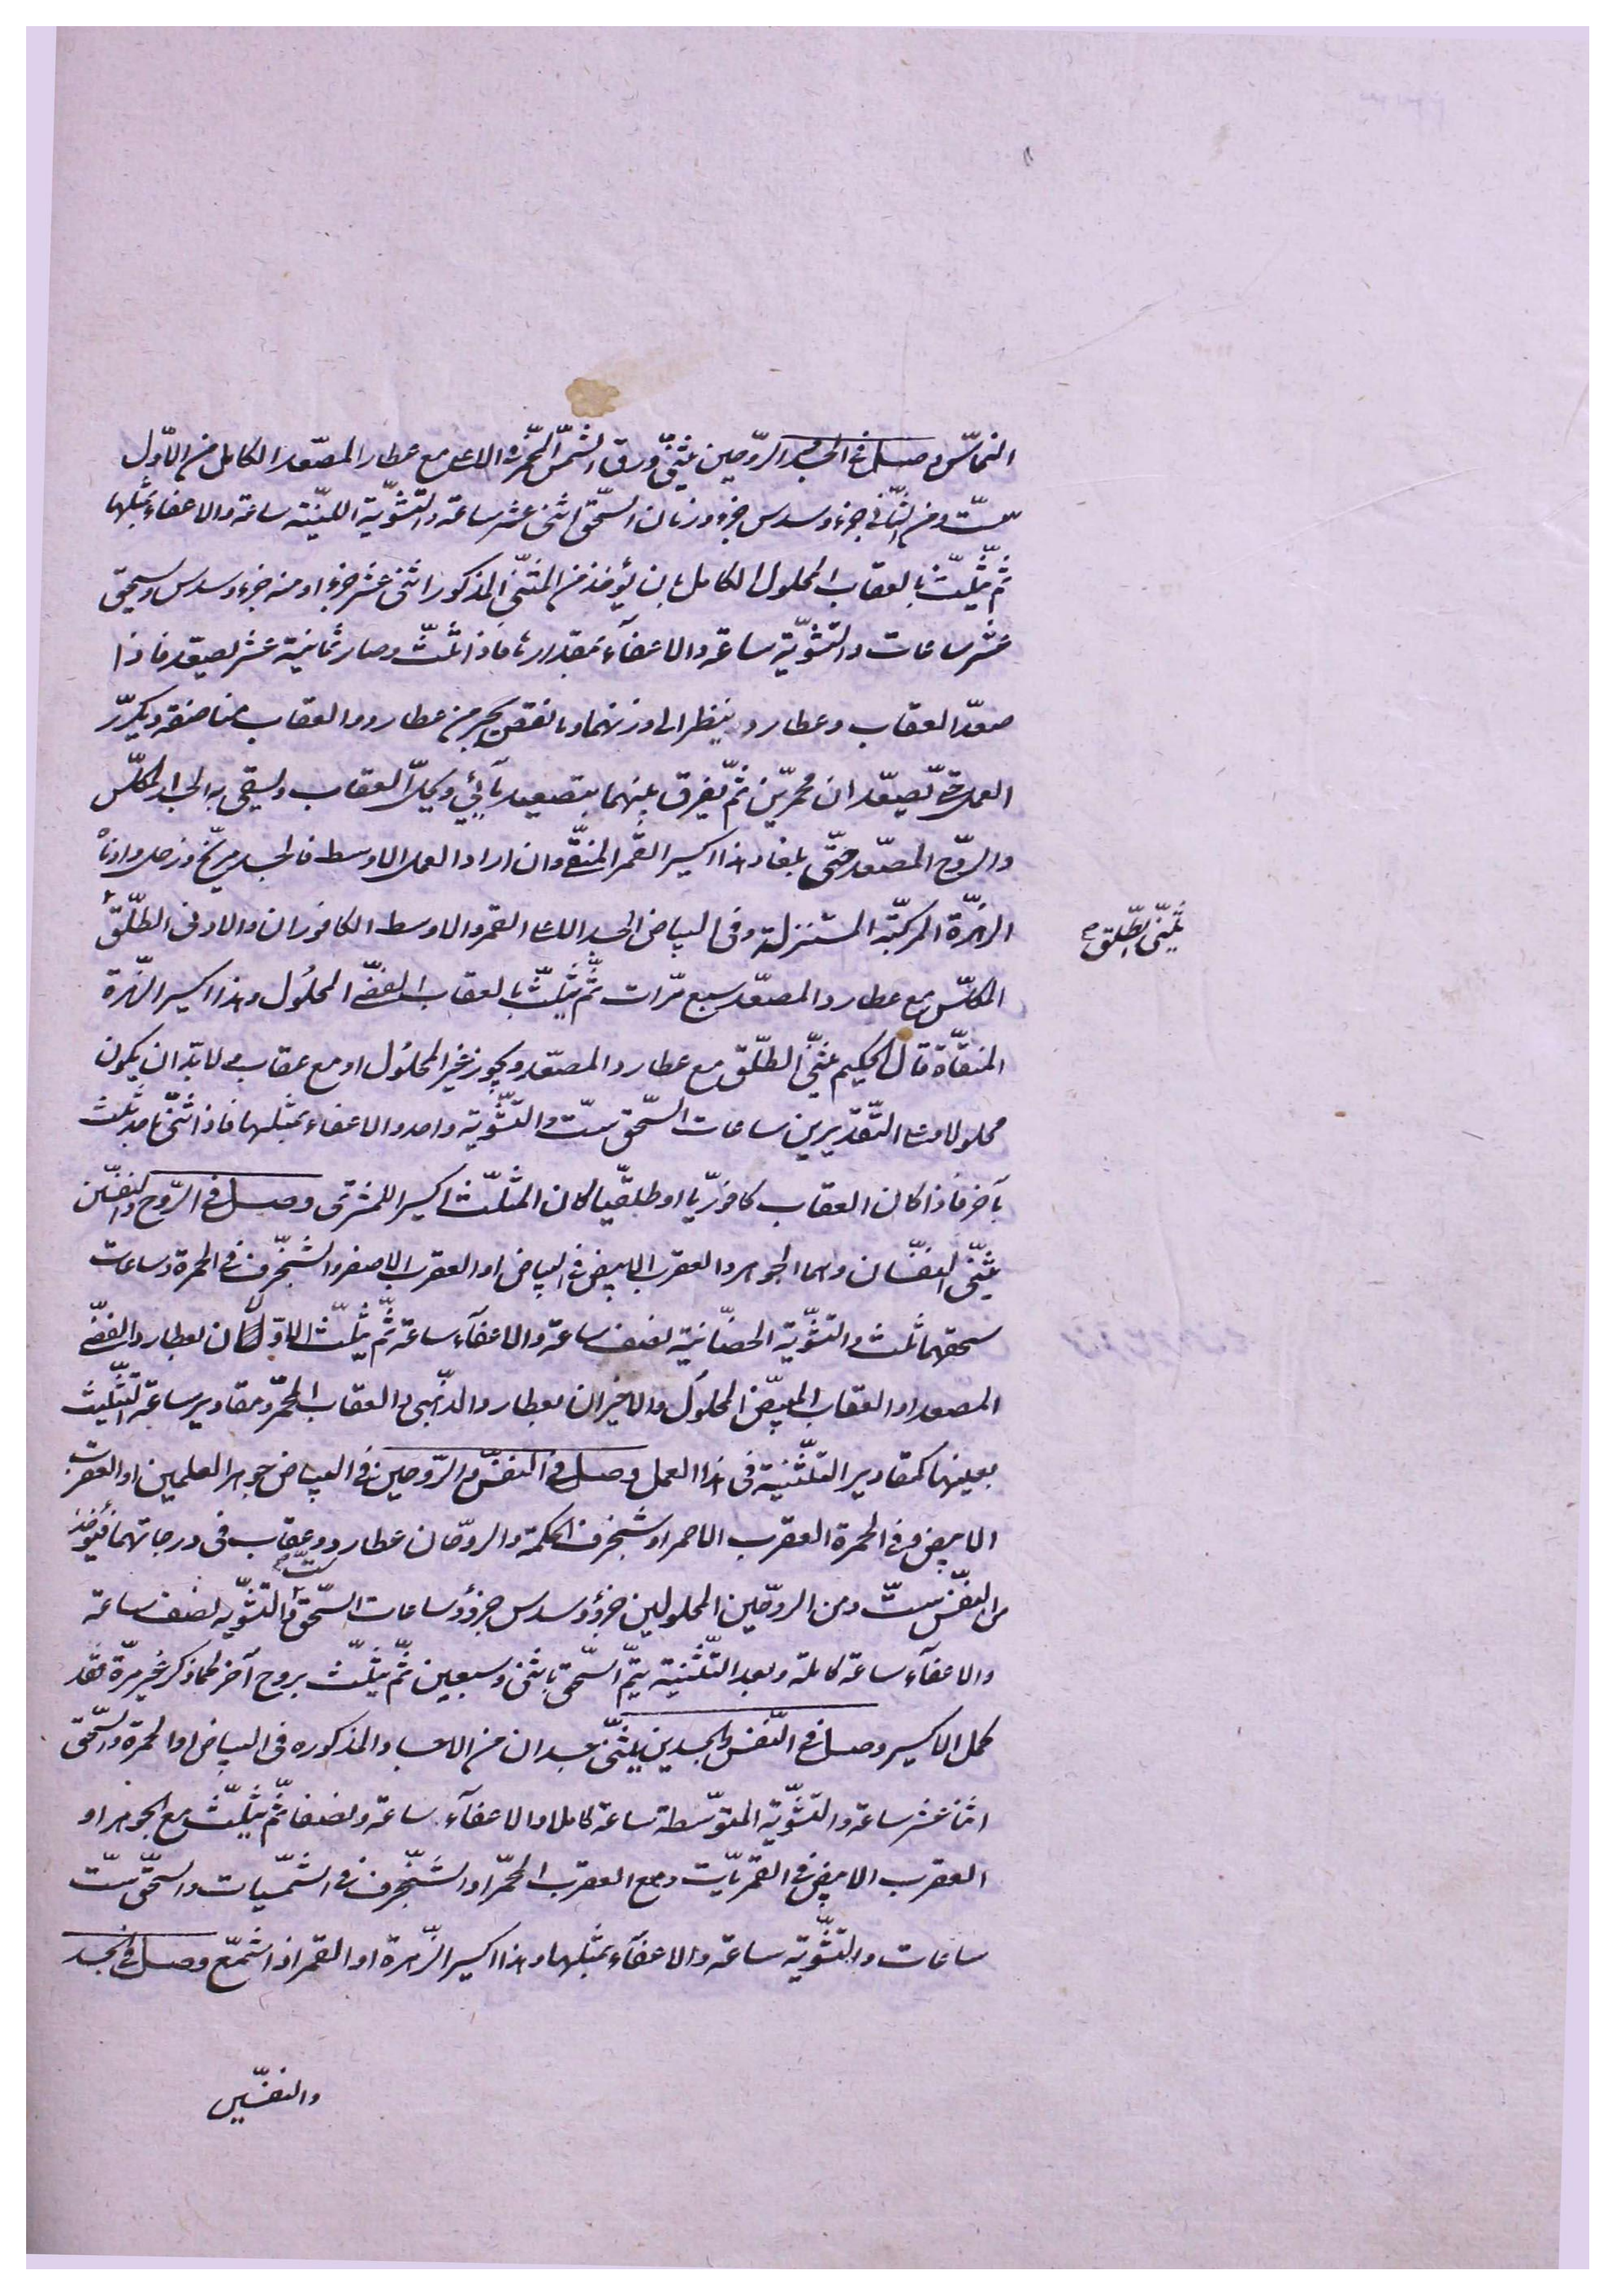 النحاس وصل فى الجسد والروحين يثنى ورق الشمس المحمرة الاعلى مع عطارد المصعد الكامل من الاول
ست ومن الثانى جزء وسدس جزء وزمان السحق اثنى عشر ساعة والتشوية اللينة ساعة والاغفاء بمثلها
ثم يثلث بالعقاب المحلول الكامل بان يؤخذ من المثنى المذكور اثنى عشر جزءا ومنه جزء وسدس ويسحق
عشر ساعات والتشوية ساعة والاغفاء بمقدارها فاذا ثلث وصار ثمانية عشر يصعد فاذا
صعد العقاب وعطارد ينظر الى اوزنهما وما نقص يجبر من عطارد والعقاب مناصفة ويكرر
العمل حتى يصعدان محمرين ثم يفرق بينهما بتصعيد مآئى ويحل العقاب ويسقى به الجسد المكلس
والروح المصعد حتى بلغا وهذا اكسير القمر المنقى وان اراد العمل الاوسط فالجسد مريخ وزحل وادناه
الزهرة المركبة المستنزلة وفى البياض الجسد الاعلى القمر والاوسط الكافوران والادنى الطلق
المكلس مع عطارد المصعد سبع مرات ثم يثلث بالعقاب الفضى المحلول وهذا اكسير الزهرة
المنقاة قال الحكيم يثنى الطلق مع عطارد المصعد ويجوز غير المحلول او مع عقاب ولابد ان يكون
محلولا وعلى التقديرين ساعات السحق ست والتشوية واحد والاغفاء بمثلها فاذا ثنى باحد يثلث
بآخر فاذا كان العقاب كافوريا او طلقيا كان المثلث اكسيرا للمشترى وصل فى الروح والنفسين
يثنى النفسان وهما الجوهر والعقرب الابيض فى البياض او العقرب الاصفر والشنجرف فى الحمرة وساعات
سحقهما ثلث والتشوية الحضانية نصف ساعة والاغفاء ساعة ثم يثلث الاولان بعطارد الفضى
المصعد او العقاب المبيض المحلول والاخيران بعطارد الذهبى والعقاب المحمر ومقادير ساعة التثليث
بعينها كمقادير التثنية فى هذا العمل وصل فى النفس والروحين فى البياض جوهر العلمين او العقرب
الابيض وفى الحمرة العقرب الاحمر او شنجرف الحكمة والروحان عطارد وعقاب فى درجاتهما فيؤخذ
من النفس ست ومن الروحين المحلولين جزؤ وسدس جزؤ وساعات السحق ست والتشويه نصف ساعة
والاغفاء ساعة كاملة وبعد التثنية يتم السحق باثنى وسبعين ثم يثلث بروح آخر كما ذكر غير مرة فقد
كمل الاكسير وصل فى النفس والجسدين يثنى جسدان من الاجساد المذكوره فى البياض او الحمرة والسحق
اثنا عشر ساعة والتشوية المتوسطة ساعة كاملا والاغفآء ساعة ونصفا ثم يثلث مع الجوهر او
العقرب الابيض فى القمريات ومع العقرب المحمر او الشنجرف فى الشمسيات والسحق ست
ساعات والتشوية ساعة والاغفآء بمثلها وهذا اكسير الزهرة او القمر اذا شمع وصل فى الجسد
والنفسين
يثنى الطلق